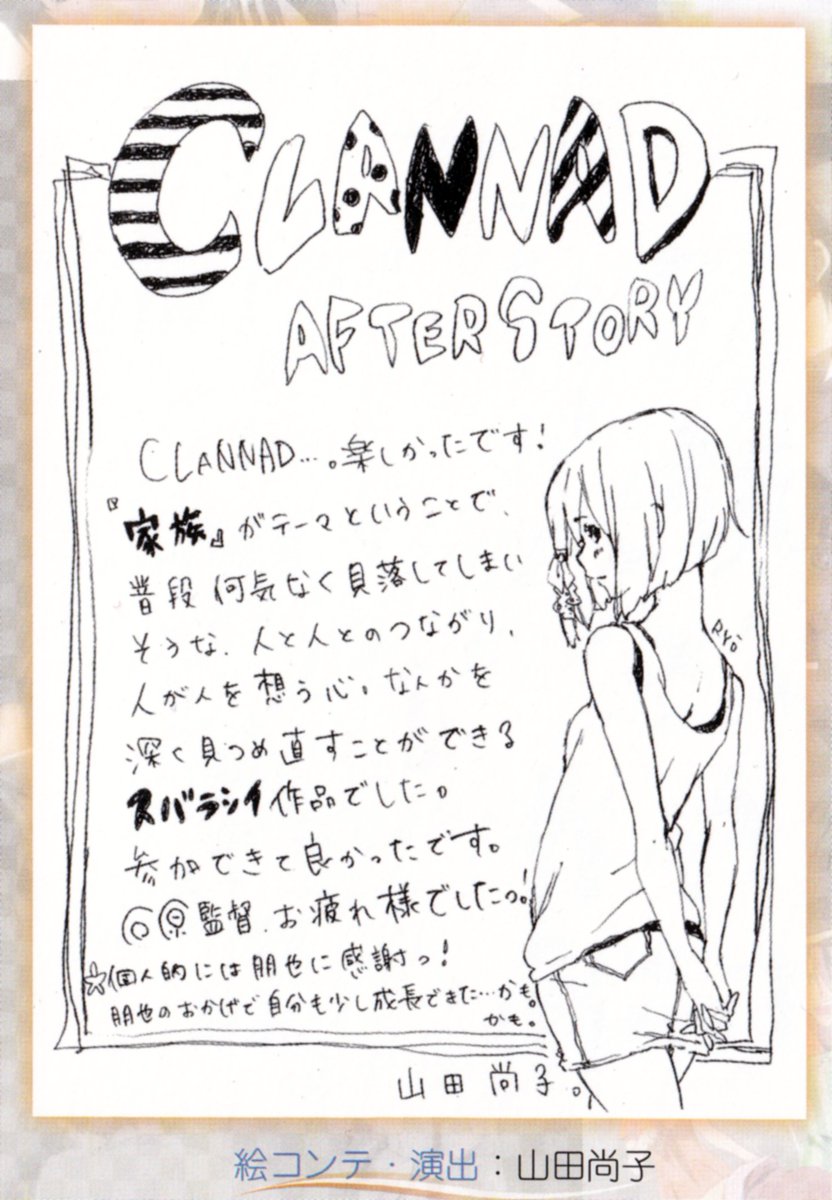 CLANNAD
AFTER STORY
CLANNAD…。楽しかったです!
『家族』がテーマということで、
普段何気なく見落してしまい
そうな、人と人とのつながり、
人が人を想う心。なんかを
深く見つめ直すことができる
スバラシイ作品でした。
参加できて良かったです。
石原監督、お疲れ様でしたっ!
☆個人的には朋也に感謝っ!
朋也のおかげで自分も少し成長できた…かも。
かも。
Ryō
山田尚子。
絵コンテ・演出:山田尚子